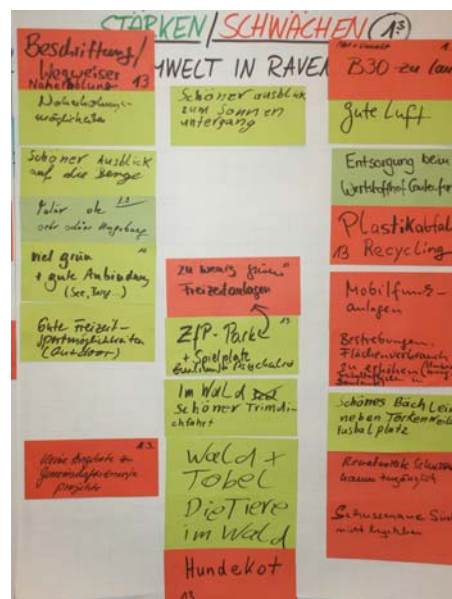 STÄRKEN/SCHWÄCHEN 1.3
MWELT IN RAVEN
Beschriftung/
Wegweiser
Naherholung 13
Naherholungs-
möglichkeiten
Schöner Ausblick
auf die Berge
viel grün
+ gute Anbindung
(See, Berg...)
Gute Freizeit-
sportmöglichkeiten
(Outdoor)
Keine Angebote zu
Gemeinschafts
projekte
Schöner ausblick
zum Sonnen
untergang
zu wenig "grüne"
Freizeitanlagen
ZfP-Parke
+ Spielplatz
Im Wald
Schöner Trimdi-
chfahrt
Wald +
Tobel
Die Tiere
im Wald
Hundekot
13
B30 zu lau
gute Luft
Entsorgung beim
Wertstoffhof
Plastikabfal
13 Recycling
Mobilfunk-
anlagen
Bestrebungen,
Flächenverbrauch
zu erhöhen
schönes Bächlein
neben Torkenweile
fusbalplatz
kaum zugänglich
nicht